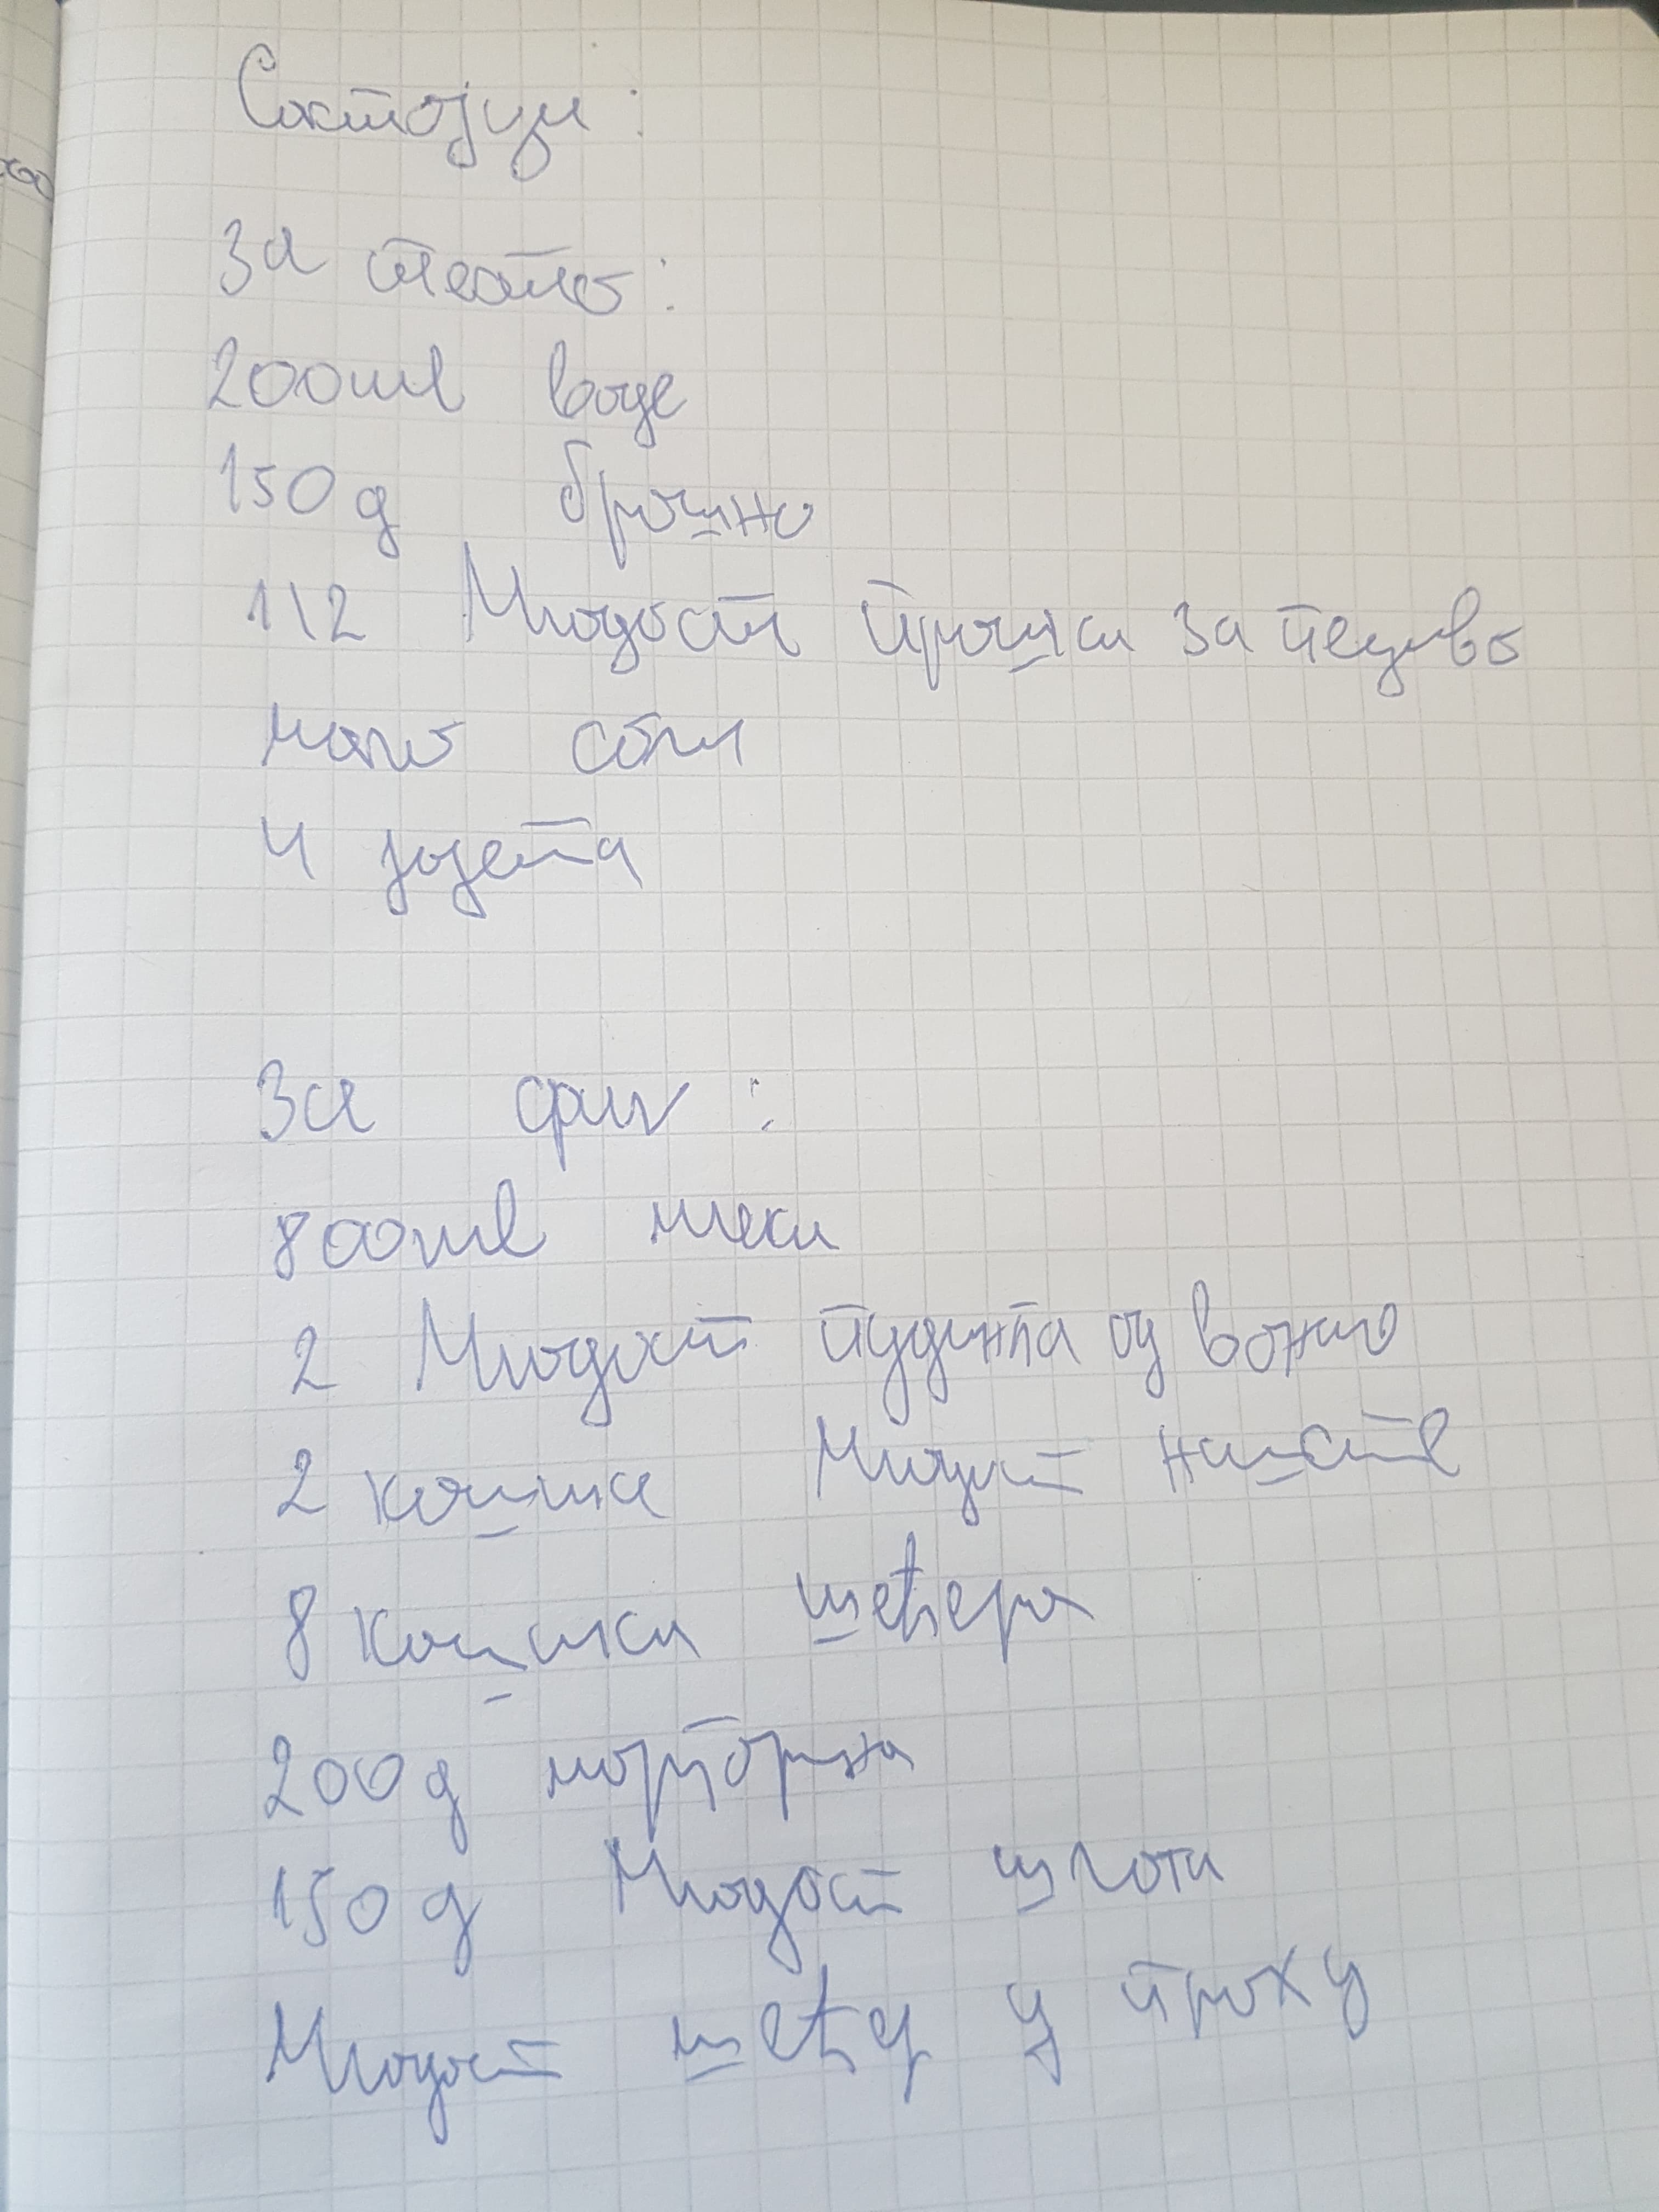 Састојци:
За тесто:
200ml воде
150g брашна
1/2 Младост прашка за пециво
мало соли
4 јајета
За фил:
800ml млека
2 Младост пудинга од ванил
2 кашике Младост нишасте
8 кашика шећера
200g маргарина
150g Младост шлага
Младост шећер у праху